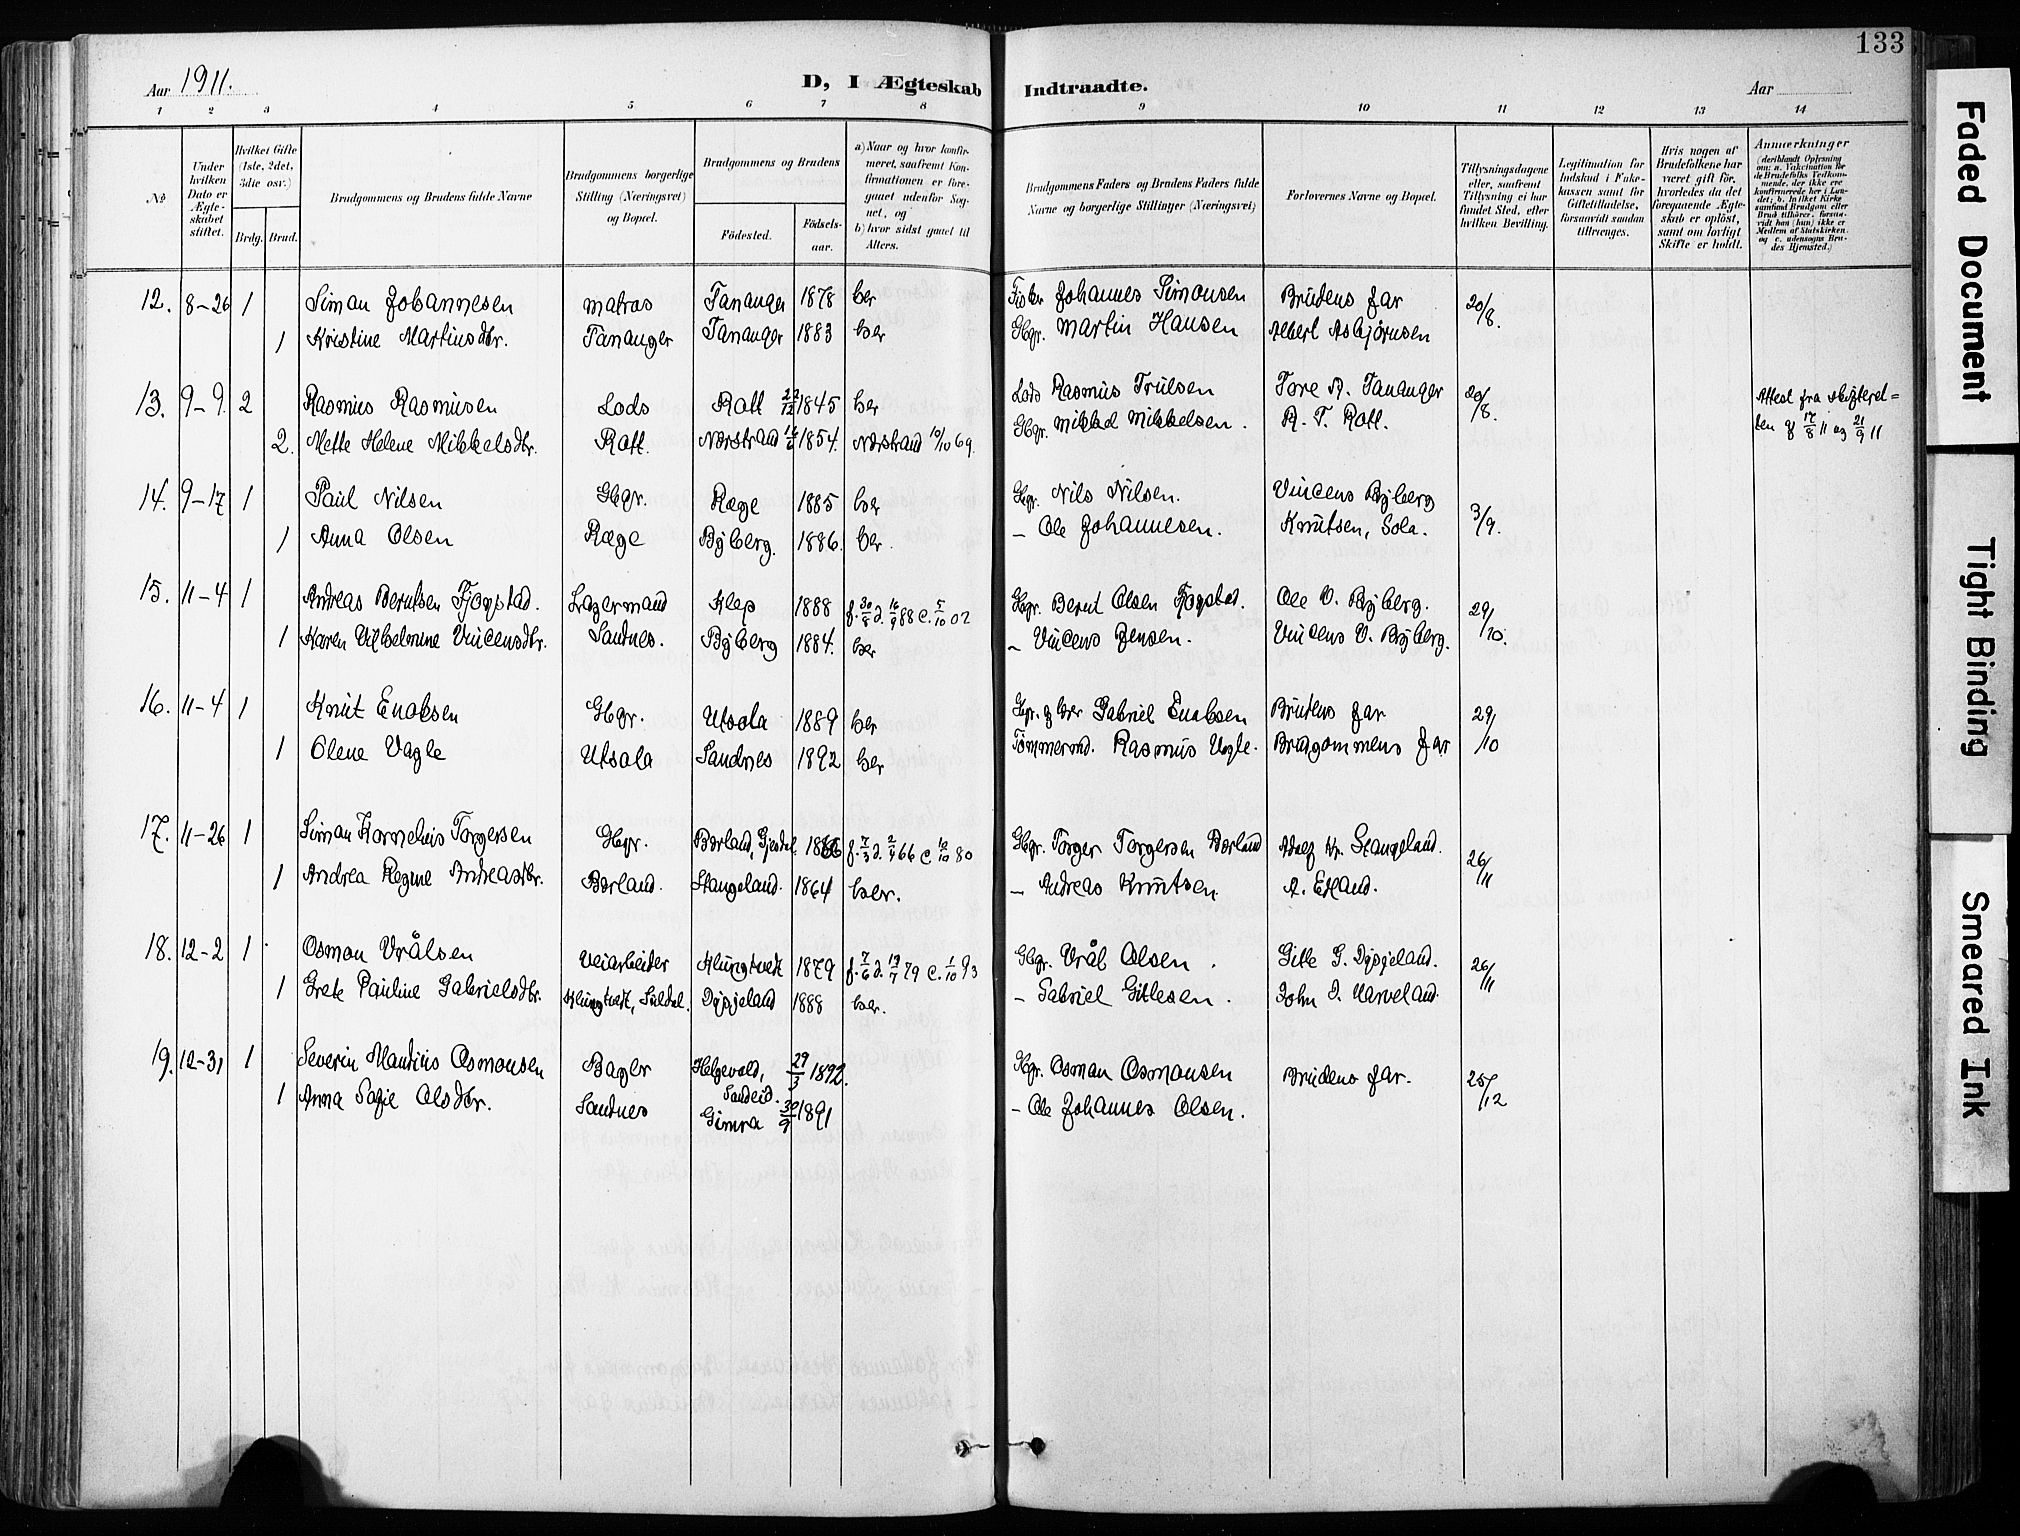 133
Aar 1911. D, I Ægteskab Indtraadte. Aar
1 2 3 4 5 6 7 8 9 10 11 12 13 14
№ Under hvilken Dato er Ægteskabet stiftet. Hvilket Gifte (1ste, 2det, 3die osv.) Brdg. Brud. Brudgommens og Brudens fulde Navne Brudgommens borgerlige Stilling (Næringsvei) og Bopæl. Brudgommens og Brudens Fødested. Fødselsaar. a) Naar og hvor konfirmeret, saafremt Konfirmationen er foregaaet udenfor Sognet, og b) hvor sidst gaaet til Alters. Brudgommens Faders og Brudens Faders fulde Navne og borgerlige Stillinger (Næringsvei) Forlovernes Navne og Bopæl. Tillysningsdagene eller, saafremt Tillysning ei har fundet Sted, efter hvilken Bevilling. Legitimation for Indskud i Enkekassen samt for Giftetilladelse, forsaavidt saadan tiltrænges. Hvis nogen af Brudefolkene har været gift før, hvorledes da det foregaaende Ægteskab er opløst, samt om lovligt Skifte er holdt. Anmærkninger (deriblandt Oplysning om: a. Vaccination for de Brudefolks Vedkommende, der ikke ere konfirmerede her i Landet; b. hvilket Kirkesamfund Brudgom eller Brud tilhører, forsaavidt han (hun) ikke er Medlem af Statskirken, og c. udensogns Brudes Hjemsted.)
12. 8-26 1 Simon Johannesen matros Tananger 1878 her Fisker Johannes Simonsen Brudens far 20/8.
1 Kristine Martinsdtr. Tananger Tananger 1883 her Gbgr. Martin Hansen Albert Asbjørnsen
13. 9-9. 2 Rasmus Rasmusen Lods Rott 22/12 1845 her Lods Rasmus Trulsen Tore R. Tananger 20/8. Attest fra skifteret=
2. Mette Helene Mikkelsdtr. Rott. Nærstrand 16/6 1854. Nærstrand 10/10 69. Gbgr. Mikkel Mikkelsen. R. T. Rott. ten af 17/8 11 og 21/9 11
14. 9-17 1 Paul Nilsen Gbgr. Ræge 1885 her Gbgr. Nils Nilsen. Vincens Byberg 3/9.
1 Anna Olsen Ræge Byberg. 1886. her. - Ole Johannesen. Knutsen, Sola.
15. 11-4 1 Andreas Berntsen Fjogstad. Lagermand Klep 1888 f. 30/8 d. 16/9 88 c. 5/10 02 Gbgr. Bernt Olsen Fjogstad. Ole V. Byberg. 29/10.
1 Karen Vilhelmine Vincensdtr. Sandnes. Byberg 1884. her - Vincens Jensen. Vincens V. Byberg.
16. 11-4 1 Knut Enoksen Gbgr. Utsola 1889 her Gbgr. Gabriel Enoksen Brudens far 29/10
1 Olene Vagle Utsola Sandnes 1892 her Tømmermd. Rasmus Vagle. Brudgommens far
17. 11-26 1 Simon Kornelius Torgersen Gbgr. Borland, Gjesdal 1866 f. 7/3 d. 2/4 66 c. 10/10 80 Gbgr. Torger Torgersen Borland Adolf Kr. Stangeland. 26/11
1 Andrea Regine Andreasdtr. Borland. Stangeland. 1864 her. - Andreas Knutsen A. Etland.
18. 12-2 1 Osmon Vrålsen Veiarbeider Klungtvedt 1879 f. 7/6 d. 19/7 79 c. 1/10 93 Gbgr. Vrål Olsen. Gitle G. Dysjeland. 26/11
1 Grete Pauline Gabrielsdtr. Klungtvedt, Suldal. Dysjeland 1888 her. - Gabriel Gitlesen. John J. Harveland.
19. 12-31 1 Severin Mandius Osmonsen Bager Helgevold, Sandeid. 29/3 1892. Gbgr. Osmon Osmonsen Brudens far. 25/12
1 Anna Sofie Olsdtr. Sandnes Gimra 30/9 1891 - Ole Johannes Olsen.
Faded Document
Tight Binding
Smeared Ink